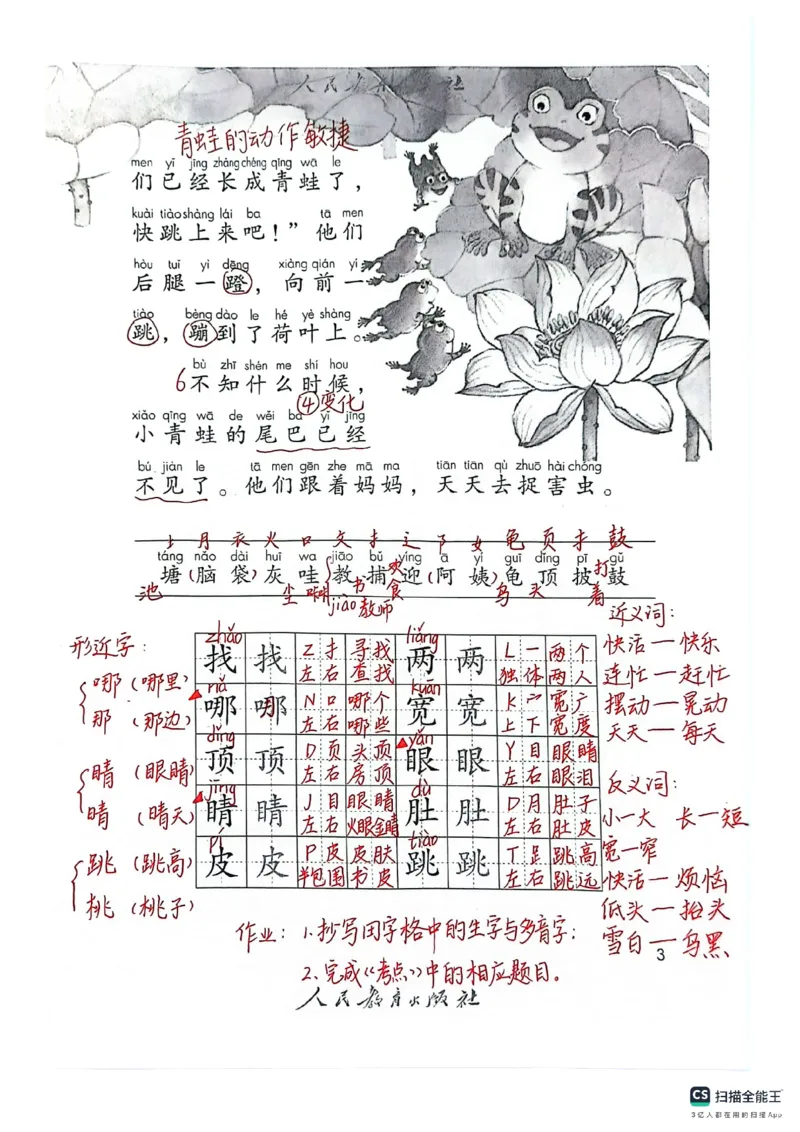 人民教育出版社
青蛙的动作敏捷
men yǐ jīng zhǎng chéng qīng wā le
们已经长成青蛙了，
kuài tiào shàng lái ba tā men
快跳上来吧！”他们
hòu tuǐ yì dēng xiàng qián yí
后腿一蹬，向前一
tiào bèng dào le hé yè shàng
跳，蹦到了荷叶上。
bù zhī shén me shí hou
6不知什么时候，
④变化
xiǎo qīng wā de wěi ba yǐ jīng
小青蛙的尾巴已经
bú jiàn le tā men gēn zhe mā ma tiān tiān qù zhuō hài chóng
不见了。他们跟着妈妈，天天去捉害虫。
土 月 衣 火 口 攵 扌 辶 阝 女 龟 页 扌 鼓
táng nǎo dài huī wa jiāo bǔ yíng ā yí guī dǐng pī gǔ
塘(脑袋)灰哇教捕迎(阿姨)龟顶披鼓
池 尘 书 食 欢 乌 头 打 着
jiào 教师
形近字：
哪（哪里）
那（那边）
睛（眼睛）
晴（晴天）
跳（跳高）
桃（桃子）
zhǎo liǎng
找 找 Z 扌 寻找 两 两 L 一 两个
左右 查找 独体 两人
nǎ kuān
哪 哪 N 口 哪个 宽 宽 K 宀 宽广
左右 哪些 上下 宽度
dǐng yǎn
顶 顶 D 页 头顶 眼 眼 Y 目 眼睛
左右 房顶 左右 眼泪
jīng dù
睛 睛 J 目 眼睛 肚 肚 D 月 肚子
左右 火眼金睛 左右 肚皮
pí tiào
皮 皮 P 皮 皮肤 跳 跳 T 足 跳高
半包围 书皮 左右 跳远
近义词：
快活—快乐
连忙—赶忙
摆动—晃动
天天—每天
反义词：
小—大 长—短
宽—窄
快活—烦恼
低头—抬头
雪白—乌黑
作业：1.抄写田字格中的生字与多音字；
2.完成《考点》中的相应题目。
3
人民教育出版社
CS 扫描全能王
3亿人都在用的扫描App